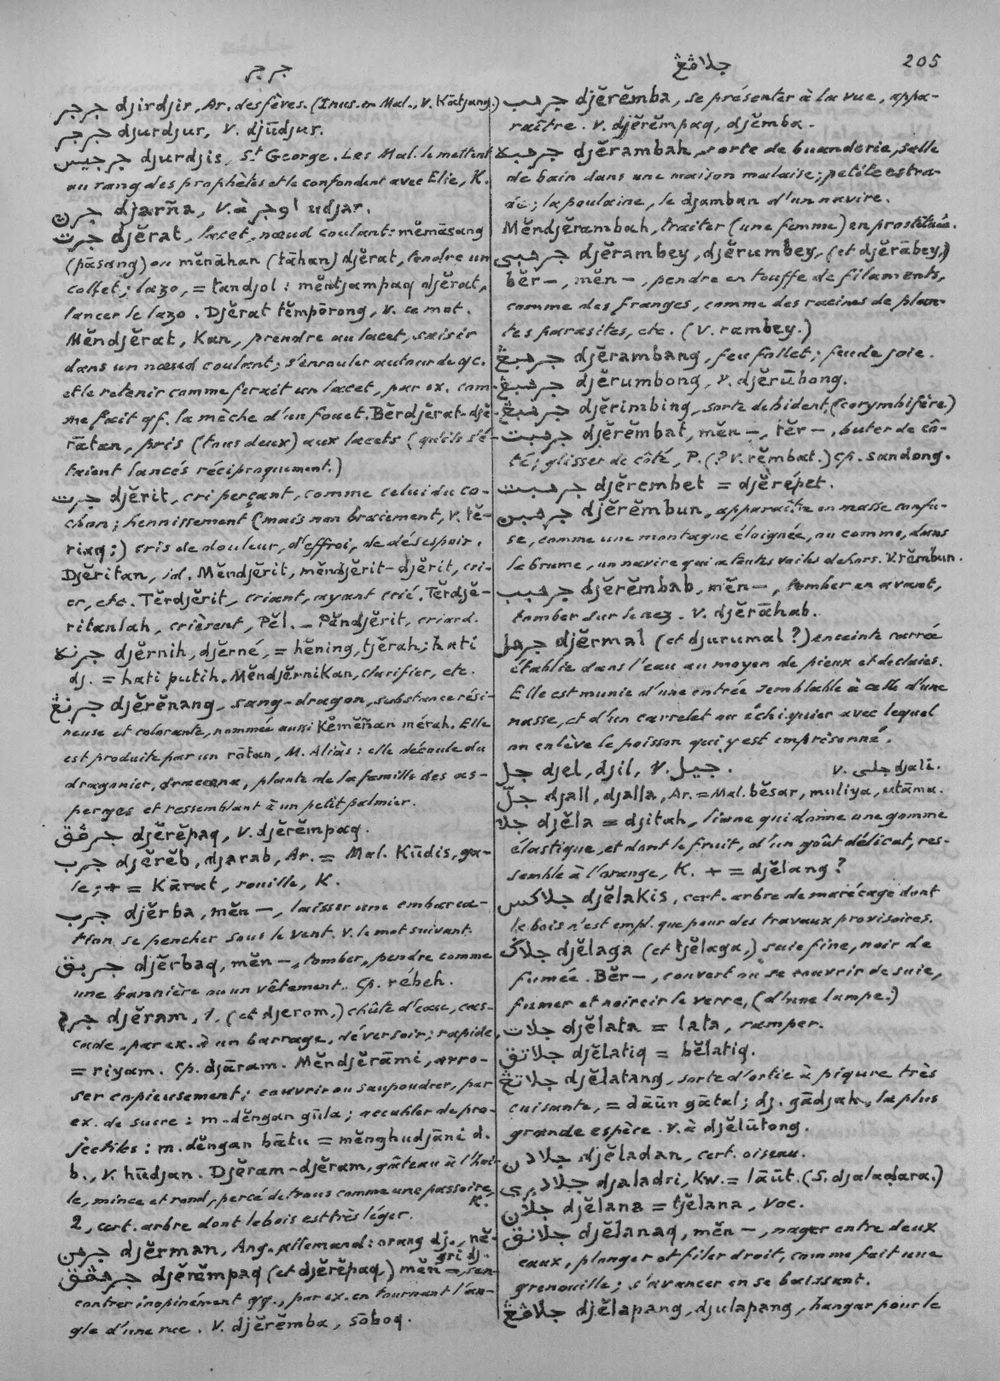 جرجر
جلاڤڠ
205
جرجر djirdjir, Ar. des fèves. (Inus. en Mal., V. Kātjang.)
جرجر djurdjus, V. djūdjus.
جرجيس djurdjis, St George. Les Mal. le mettent
au rang des prophètes et le confondent avec Elie, K.
جرن djarña, V. à اوجر udjar.
جرت djĕrat, lacet, nœud coulant: mĕmāsang
(pāsang) ou mĕnāhan (tāhan) djĕrat, tendre un
collet; lazo, = tandjol: mĕntjampaq djĕrat,
lancer le lazo. Djĕrat tĕmpōrong, V. ce mot.
Mĕndjĕrat, Kan, prendre au lacet, saisir
dans un nœud coulant; s'enrouler autour de qc.
et le retenir comme ferait un lacet, par ex. com-
me fait qf. la mèche d'un fouet. Bĕrdjĕrat-djĕ-
rātan, pris (tous deux) aux lacets (qu'ils s'é-
taient lancés réciproquement.)
جرت djĕrit, cri perçant, comme celui du co-
chon; hennissement (mais non braiement, V. tĕ-
riaq;) cris de douleur, d'effroi, de désespoir.
Djĕritan, id. Mĕndjĕrit, mĕndjĕrit-djĕrit, cri-
er, etc. Tĕrdjĕrit, criant, ayant crié. Tĕrdjĕ-
ritanlah, crièrent, Pĕl. — Pĕndjĕrit, criard.
جرنه djĕrnih, djĕrné, = hĕning, tjĕrah; hati
dj. = hati putih. MĕndjĕrniKan, clarifier, etc.
جرنڠ djĕrĕnang, sang-dragon, substance rési-
neuse et colorante, nommée aussi Kĕmĕñan mérah. Elle
est produite par un rōtan, M. Aliās: elle découle du
dragonier, dracœna, plante de la famille des as-
perges et ressemblant à un petit palmier.
جرڤق djĕrĕpaq, V. djĕrĕmpaq.
جرب djĕrĕb, djarab, Ar. = Mal. Kūdis, ga-
le; + = Kārat, rouille, K.
جرب djĕrba, mĕn—, laisser une embarca-
tion se pencher sous le vent. V. le mot suivant.
جربق djĕrbaq, mĕn—, tomber, pendre comme
une bannière ou un vêtement. Cp. rébeh.
جرم djĕram, 1, (et djerom,) chûte d'eau, cas-
cade, par ex. à un barrage, déversoir; rapide
= riyam. Cp. djāram. Mĕndjĕrāmi, arro-
ser copieusement; couvrir ou saupoudrer, par
ex. de sucre: m. dĕngan gūla; accabler de pro-
jectiles: m. dĕngan bātu = mĕnghudjāni d.
b., V. hūdjan. Djĕram-djĕram, gâteau à l'hui-
le, mince et rond, percé de trous comme une passoire, K.
2, cert. arbre dont le bois est très léger.
جرمن djĕrman, Ang. allemand: orang dj., nĕ-
gri dj.
جرمڤق djĕrĕmpaq (et djĕrĕpaq,) mĕn—, ren-
contrer inopinément qq., par ex. en tournant l'an-
gle d'une rue. V. djĕrĕmba, sōboq.
جرمب djĕrĕmba, se présenter à la vue, appa-
raître. V. djĕrĕmpaq, djĕmba.
جرمبه djĕrambah, sorte de buanderie, salle
de bain dans une maison malaise; petite estra-
de; la poulaine, le djamban d'un navire.
Mĕndjĕrambah, traiter (une femme) en prostituée.
جرمبي djĕrambey, djĕrumbey, (et djĕrābey,)
bĕr—, mĕn—, pendre en touffe de filaments,
comme des franges, comme des racines de plan-
tes parasites, etc. (V. rambey.)
جرمبڠ djĕrambang, feu follet; feu de joie.
جرمبڠ djĕrumbong, V. djĕrūbong.
جرمبڠ djĕrimbing, sorte de bident, (corymbifère.)
جرمبت djĕrĕmbat, mĕn—, tĕr—, buter de cô-
té; glisser de côté, P. (? V. rĕmbat.) Cp. sandong.
جرمبت djĕrembet = djĕrépet.
جرمبن djĕrĕmbun, apparaître en masse confu-
se, comme une montagne éloignée, ou comme, dans
la brume, un navire qui a toutes voiles dehors. V. rĕmbun.
جرمبب djĕrĕmbab, mĕn—, tomber en avant,
tomber sur le nez. V. djĕrāhab.
جرمل djĕrmal (et djurumal ?) enceinte carrée
établie dans l'eau au moyen de pieux et de claies.
Elle est munie d'une entrée semblable à celle d'une
nasse, et d'un carrelet ou échiquier avec lequel
on enlève le poisson qui y est emprisonné.
جل djel, djil, V. جيل. V. جلى djali.
جلّ djall, djalla, Ar. = Mal. bĕsar, muliya, utāma.
جلا djĕla = djitah, liane qui donne une gomme
élastique, et dont le fruit, d'un goût délicat, res-
semble à l'orange, K. + = djĕlang?
جلاکس djĕlaKis, cert. arbre de marécage dont
le bois n'est empl. que pour des travaux provisoires.
جلاڬ djĕlaga (et tjĕlaga,) suie fine, noir de
fumée. Bĕr—, couvert ou se couvrir de suie,
fumer et noircir le verre, (d'une lampe.)
جلات djĕlata = lata, ramper.
جلاتق djĕlatiq = bĕlatiq.
جلاتڠ djĕlatang, sorte d'ortie à piqûre très
cuisante, = dāūn gātal; dj. gādjah, la plus
grande espèce. V. à djĕlūtong.
جلادن djĕladan, cert. oiseau.
جلادري djaladri, Kw. = lāūt. (S. djaladara.)
جلان djĕlana = tjĕlana, Voc.
جلانق djĕlanaq, mĕn—, nager entre deux
eaux, plonger et filer droit, comme fait une
grenouille; s'avancer en se baissant.
جلاڤڠ djĕlapang, djulapang, hangar pour le